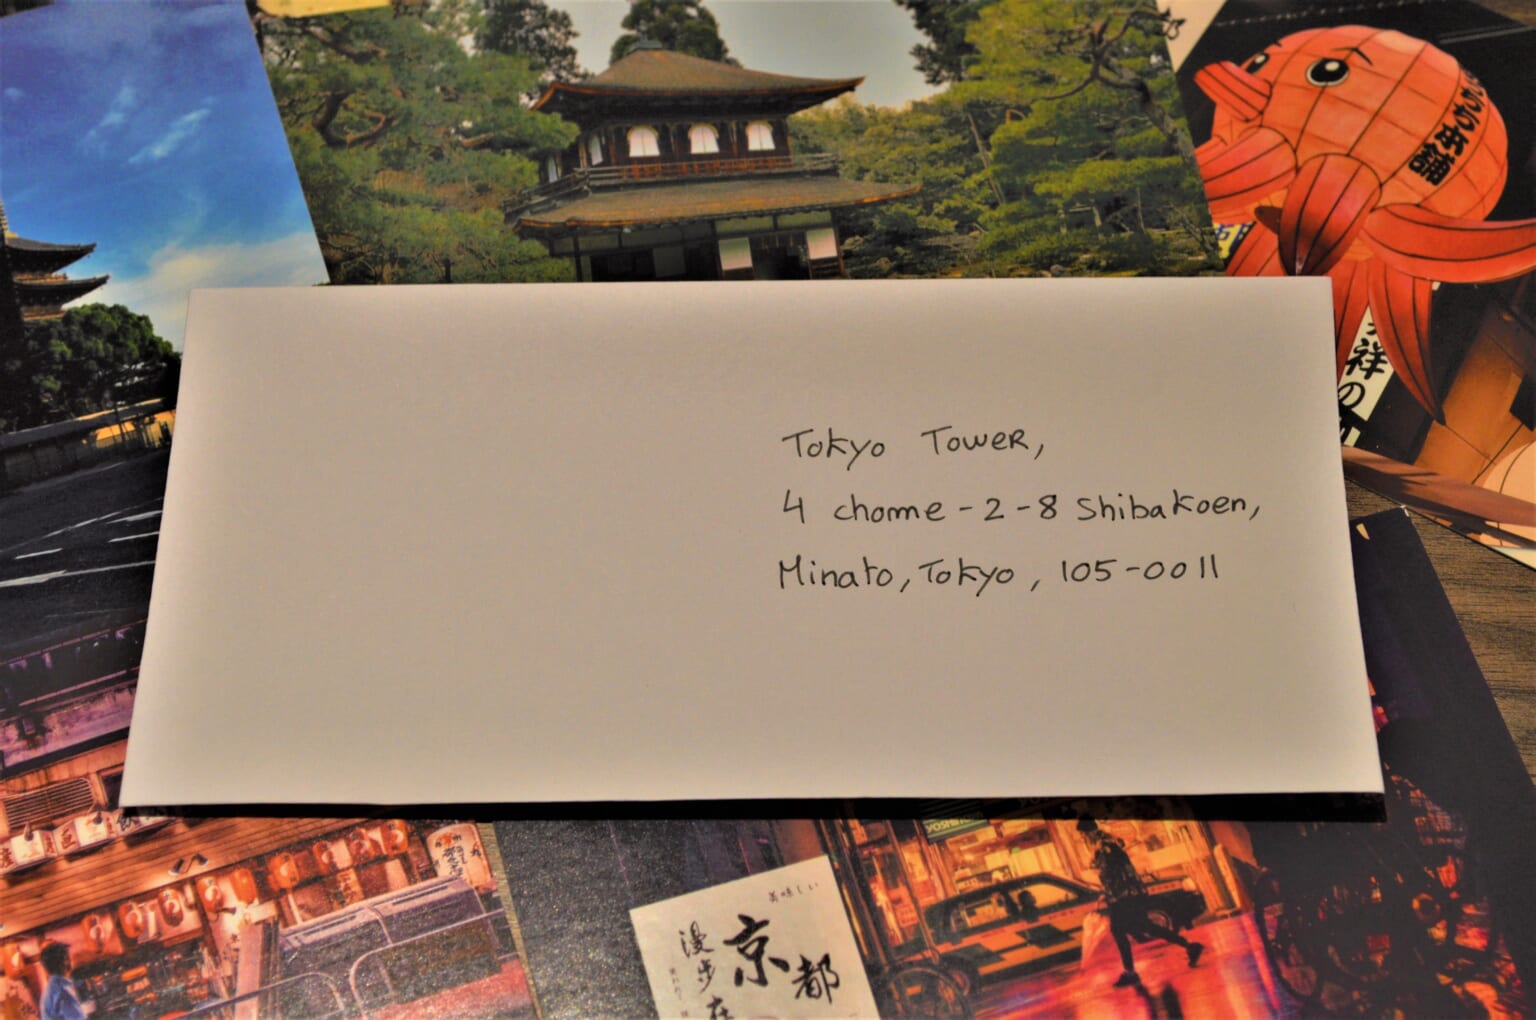 Tokyo Tower,
4 chome-2-8 Shibakoen,
Minato, Tokyo, 105-0011
本舗
祥の
美味しい
京都
漫步在